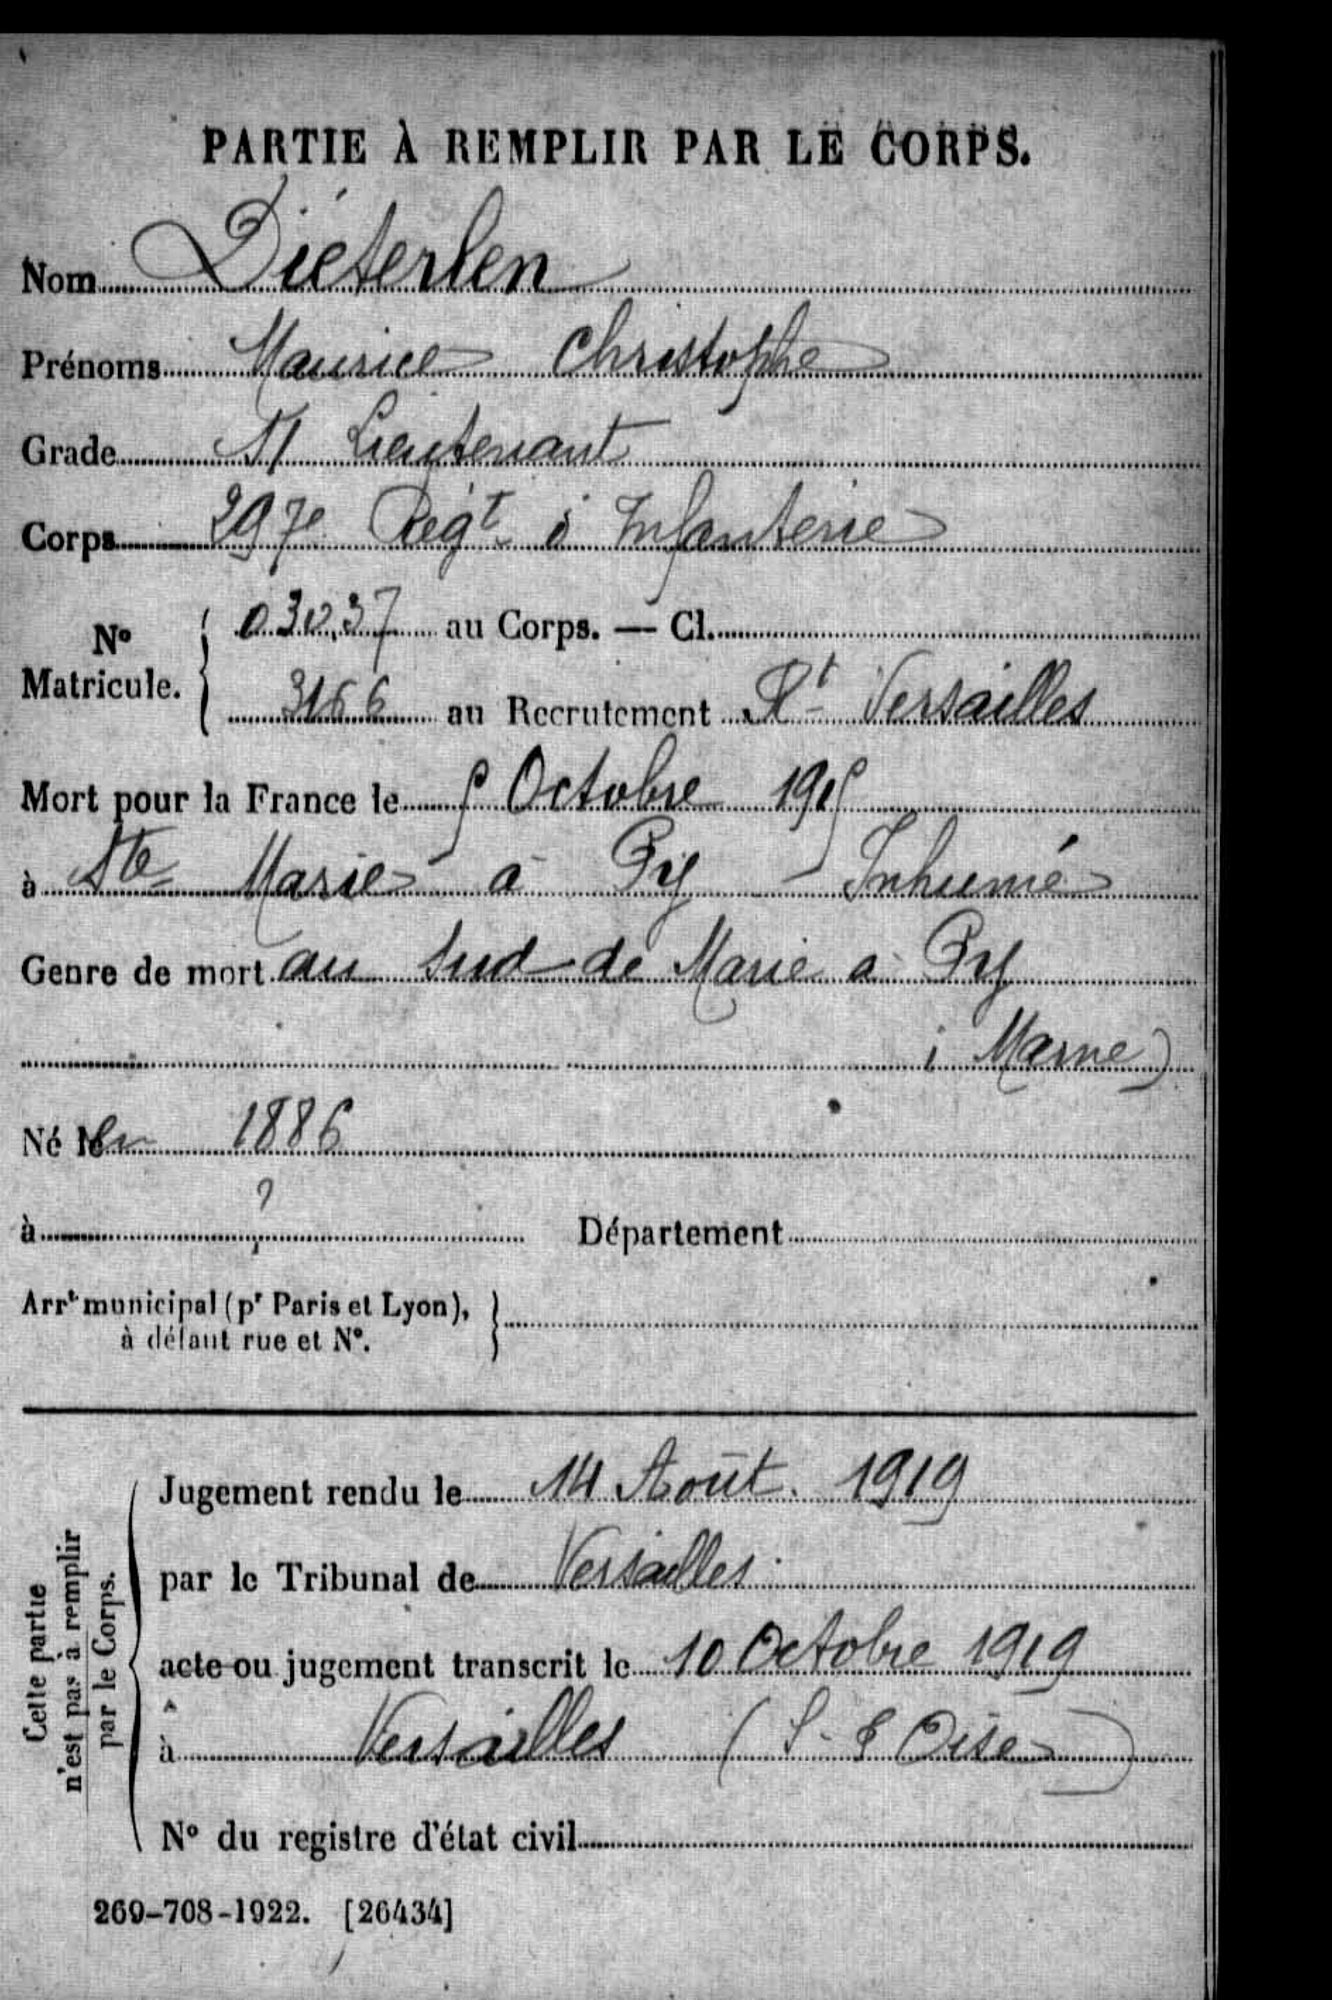 PARTIE À REMPLIR PAR LE CORPS.
Nom Diéterlen
Prénoms Maurice Christophe
Grade S/ Lieutenant
Corps 297e Régt d' Infanterie
No Matricule. 03037 au Corps. — Cl.
3166 au Recrutement Versailles
Mort pour la France le 5 Octobre 1915
à Ste Marie à Py - Inhumé
Genre de mort au sud de Marie à Py
( Marne )
Né le en 1886
à ? Département
Arrt municipal (pr Paris et Lyon), à défaut rue et No.
Cette partie n'est pas à remplir par le Corps.
Jugement rendu le 14 Août. 1919
par le Tribunal de Versailles
acte ou jugement transcrit le 10 Octobre 1919
à Versailles ( S. & Oise )
No du registre d'état civil
269-708-1922. [26434]